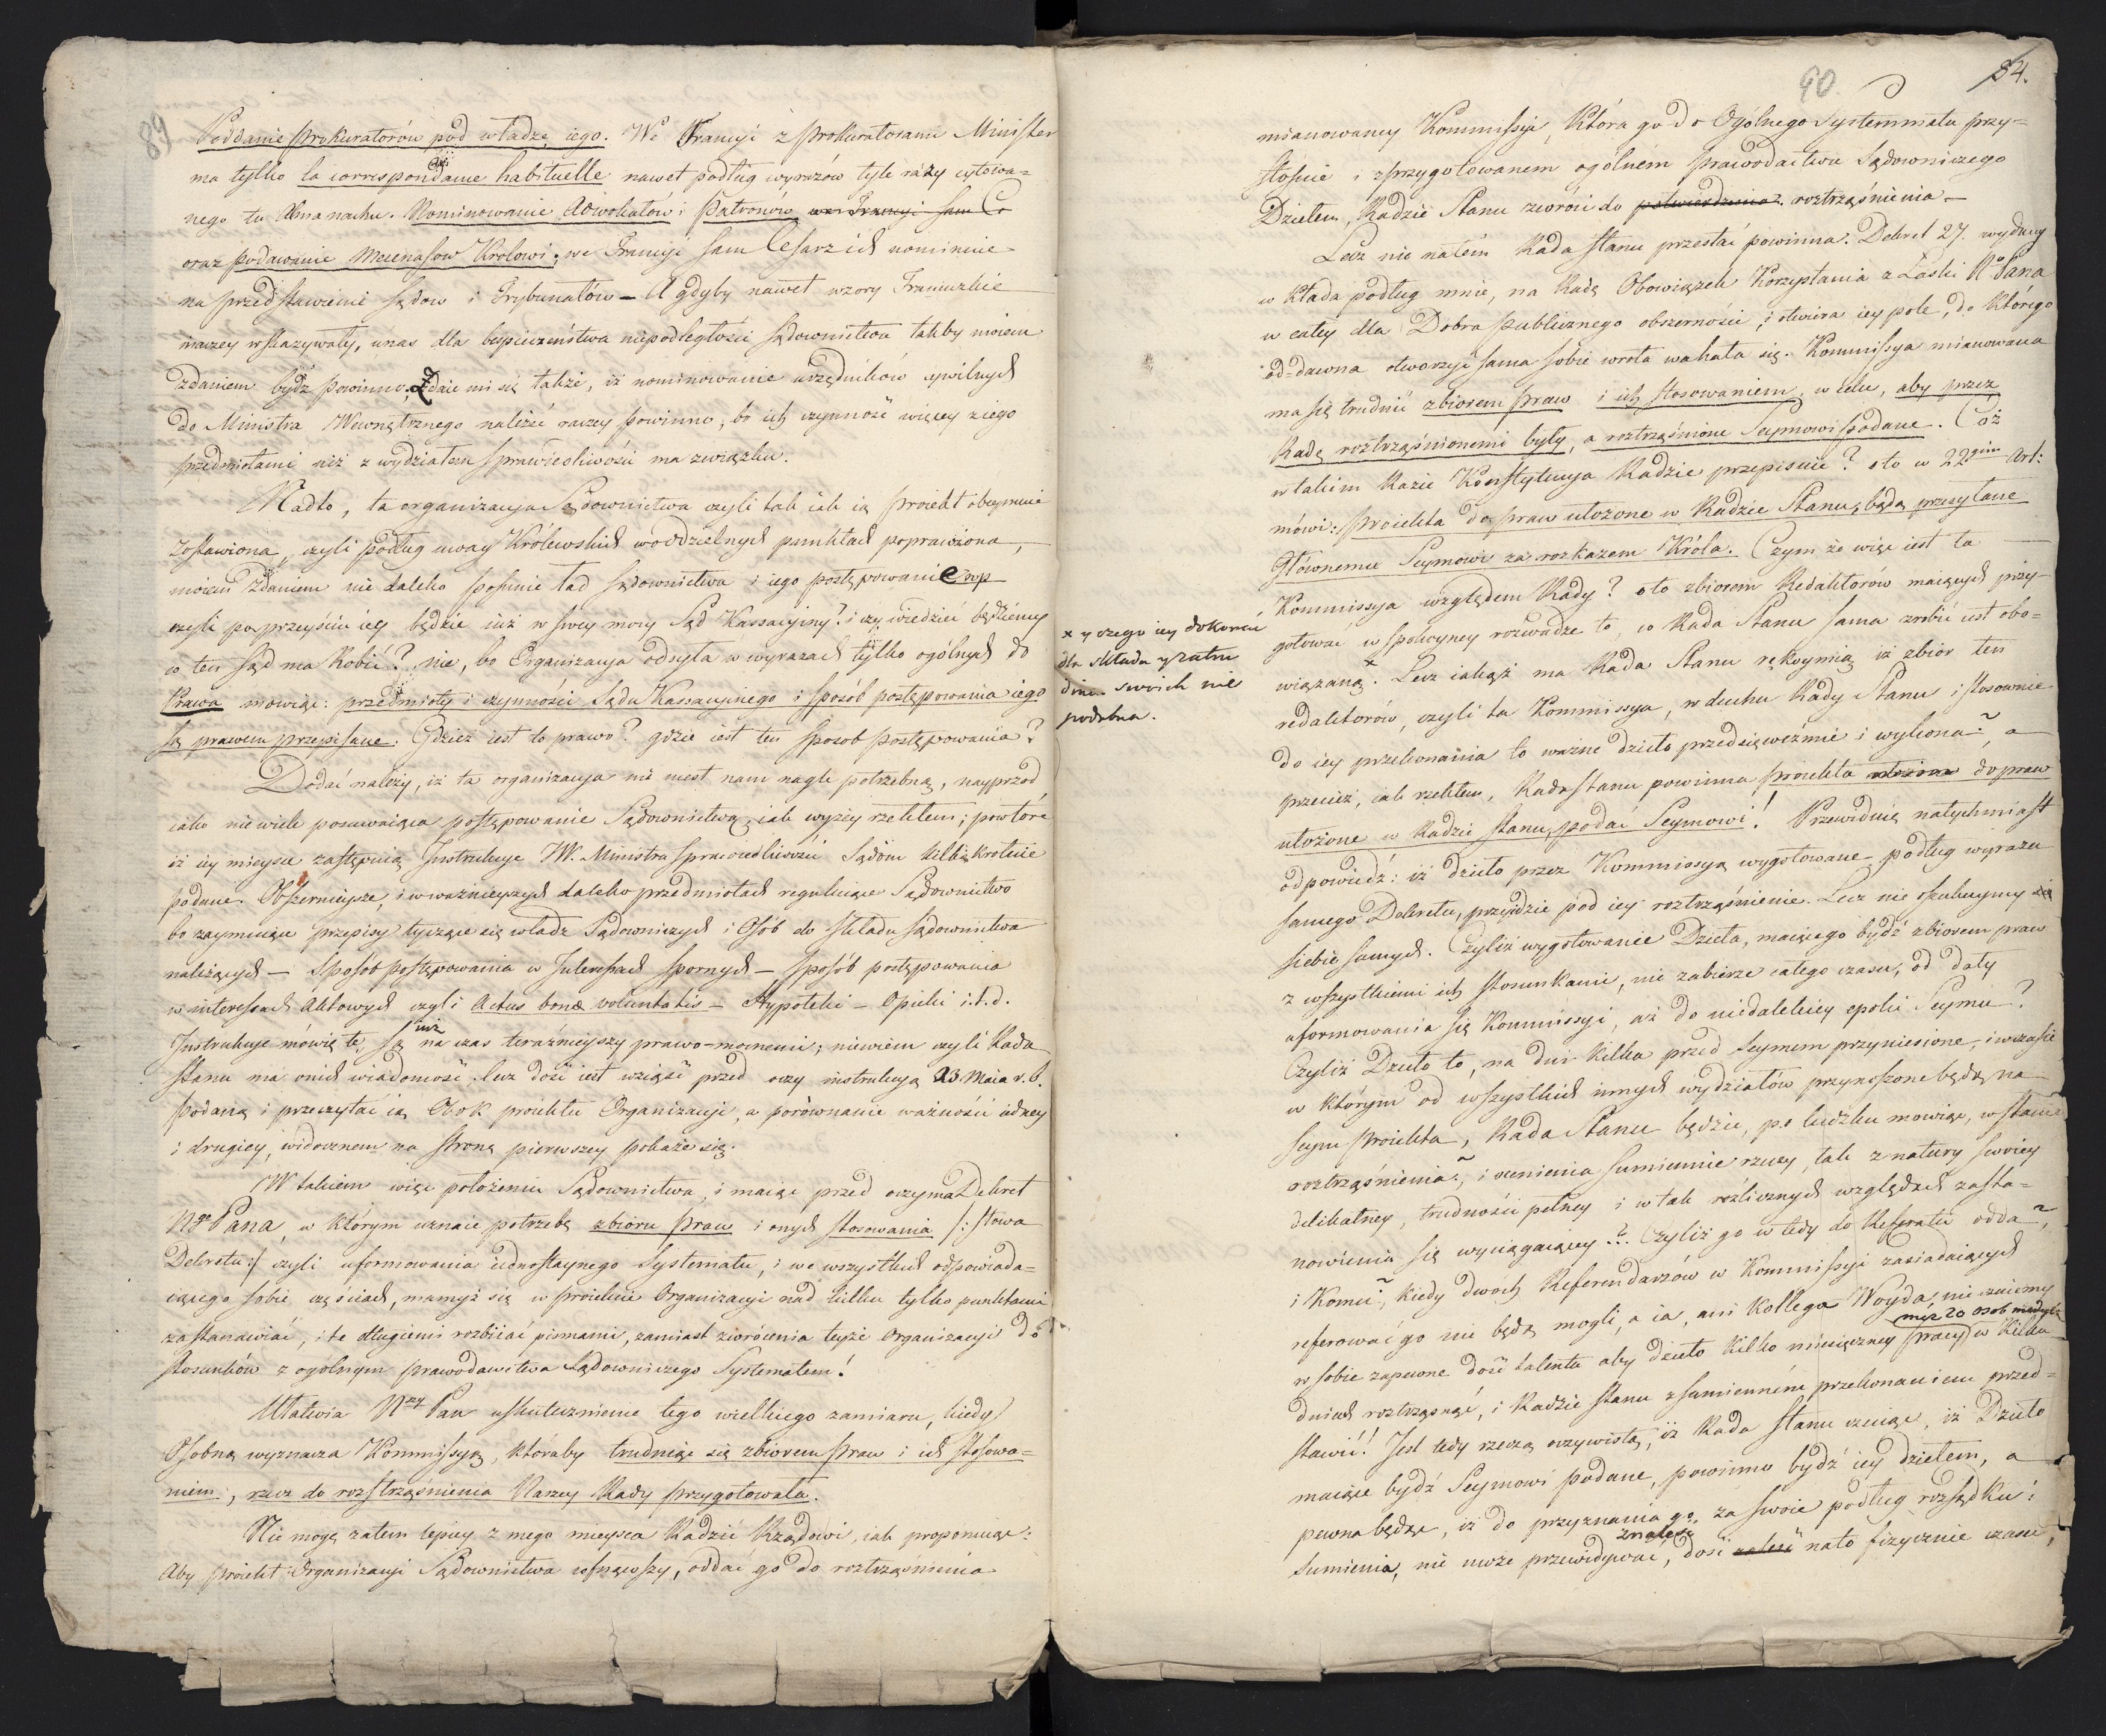 89
Poddanie Prokuratorów pod władzę iego. We Francyi z Prokuratorami Minister
ma tylko la correspondance habituelle nawet podług wyrazów tyle razy cytowa=
nego tu Almanachu. Nominowanie Adwokatów i Patronów we Francyi sam Ce
oraz podawanie Mecenasow Krolowi; we Francyi sam Cesarz ich nominuie
na przedstawienie sądow i Trybunałów — A gdyby nawet wzory Francuzkie
inaczey wskazywały, unas dla bespieczeństwa niepodległości sądownictwa takby moiem
zdaniem bydź powinno. Zdaie mi się także, iż nominowanie urzędników cywilnych
do Ministra Wewnętrznego należeć raczey powinno, bo ich czynność więcey ziego
przedmiotami niż z wydziałem sprawiedliwości ma związku.
Nadto, ta organizacya Sądownictwa czyli tak iak ią proiekt obeymuie
zostawiona, czyli podług uwag Królewskich woddzielnych punktach poprawiona,
moiem zdaniem nie daleko posunie ład sądownictwa i iego postępowanie
czyli po przeyściu iey będzie iuż w swey mocy Sąd Kassacyiny? i czy wiedzieć będziemy
co ten sąd ma Robić? nie, bo Organizacya odsyła w wyrazach tylko ogólnych do
Prawa mowiąc: przedmioty i czynności Sądu Kassacyinego i sposób postępowania iego
są prawem przepisane. Gdzież iest to prawo? gdzie iest ten sposob postępowania?
Dodać należy, iż ta organizacya nie iest nam nagle potrzebną, nayprzod
iako nie wiele posuwaiąca postępowanie Sądownictwa, iak wyzey rzekłem; powtóre
iż iey mieysce zastępuią Instrukcye JW. Ministra sprawiedliwości Sądom kilkakrotnie
podane. Obszernieysze, i w ważnieyszych daleko przedmiotach reguluiące Sądownictwo
bo zaymuiące przepisy tyczące się władz Sądowniczych i Osób do składu sądownictwa
należących — Sposób postępowania w Interessach spornych — sposób postępowania
w interessach Aktowych czyli Actus bonæ voluntatis — Hypoteki — Opieki i.t.d.
Instrukcye mówię te, są iuż na czas teraźnieyszy prawo-mocnemi; niewiem czyli Rada
stanu ma onich wiadomość. lecz dość iest wziąść przed oczy instrukcyą 23 Maia r.b.
podaną i przeczytać ią Obok proiektu Organizacyi, a porównanie ważności iedney
i drugiey, widocznem na stronę pierwszey pokaże się.
W takiem więc położeniu Sądownictwa, i maiąc przed oczyma Dekret
Ngo Pana, w którym uznaie potrzebę zbioru praw i onych stosowania /: słowa
Dekretu :/ czyli uformowania iednostaynego Systematu, i we wszystkich odpowiada=
iącego sobie częściach, mamyż się w proiekcie Organizacyi nad kilku tylko punktami
zastanawiać, i te długiemi rozbiiać pismami, zamiast zwrócenia teyże Organizacyi do
stosunków z ogólnym prawodawctwa Sądowniczego Systematem!
Ułatwia Nay Pan uskutecznienie tego wielkiego zamiaru, kiedy
Osobną wyznacza Kommissyą, któraby trudniąc się zbiorem praw i ich stosowa=
niem, rzecz do rozstrząśnienia Naszey Rady przygotowała.
Nie mogę zatem lepiey z mego mieysca Radzić Rządowi, iak proponuiąc:
Aby proiekt Organizacyi Sądownictwa cofnąwszy, oddać go do roztrząśnienia
90.
84.
mianowaney Kommissyi, Która go do Ogólnego Systemmatu przy=
stosuie i z przygotowanem ogólnem prawodactwa Sądowniczego
Dziełem, Radzie Stanu zwróci do potwierdzenia. roztrząśnienia —
Lecz nie natém Rada stanu przestać powinna. Dekret 27. wydany
w kłada podług mnie, na Radę Obowiązek Korzystania z Łaski No Pana
w całey dla Dobra Publicznego obszerności, i otwiera iey pole, do którego
od=dawna otworzyć sama sobie wrota wahała się. Kommissya mianowana
ma się trudnić zbiorem praw i ich stosowaniem, w celu, aby przez
Radę roztrząśnionemi były, a roztrząśnione Seymowi podane. Cóż
w takim Razie Konstytucya Radzie przepisuie? oto w 22gim Art:
mówi: proiekta do praw ułożone w Radzie Stanu, będą przesyłane
Głównemu Seymowi za rozkazem Króla. Czym że więc iest ta
Kommissya względem Rady? oto zbiorem Redaktorów maiących przy=
gotować w spokoyney rozwadze to, co Rada Stanu sama zrobić iest obo=
wiązaną.* Lecz iakąż ma Rada Stanu rękoymią iż zbior ten
redaktorów, czyli ta Kommissya, w duchu Rady Stanu i stosownie
do iey przekonania to ważne dzieło przedsięweźmie i wykona, a
przecież, iak rzekłem, Rada stanu powinna proiekta do praw
ułożone w Radzie stanu, podać Seymowi! Przewiduię natychmiast
odpowiedź: iż dzieło przez Kommissyą wygotowane, podług wyrazu
samego Dekretu, przyidzie pod iey roztrząśnienie. Lecz nie oszukuymy
siebie samych. Czyliż wygotowanie Dzieła, maiącego bydź zbiorem praw
z wszystkiemi ich stosunkami, nie zabierze całego czasu, od daty
uformowania się Kommissyi, aż do niedalekiey epoki Seymu?
Czyliż Dzieło to, na dni kilka przed Seymem przyniesione, i wczasie
w którym od wszystkich innych wydziałów przynoszone będą na
seym proiekta, Rada Stanu będzie, po ludzku mowiąc, w stanie
roztrząśnienia, i ocenienia sumiennie rzeczy, tak z natury swoiey
delikatney, trudności pełney i w tak rozlicznych względach zasta=
nowienia się wyciągaiącey? Czyliż go wtedy do Referatu odda,
i Komu, kiedy dwóch Referendarzów w Kommissyi zasiadaiących
referować go nie będą mogli, a ia, ani Kollega Woyda, nie czuiemy
w sobie zapewne dość talentu aby dzieło kilko miesięczney pracy w kilku
dniach roztrząsnąć, i Radzie stanu z sumienném przekonaniem przed=
stawić! Jest tedy rzeczą oczywistą, iż Rada stanu czuiąc, iż Dzieło
maiące bydź Seymowi podane, powinno bydź iey dziełem, a
pewna będąc, iż do przyznania go za swoie podług rozsądku i
sumienia, nie może przewidywać, dość znaleść nato fizycznie czasu,
* y czego iey dokonać
dla składu y
swoich nie
podobna.